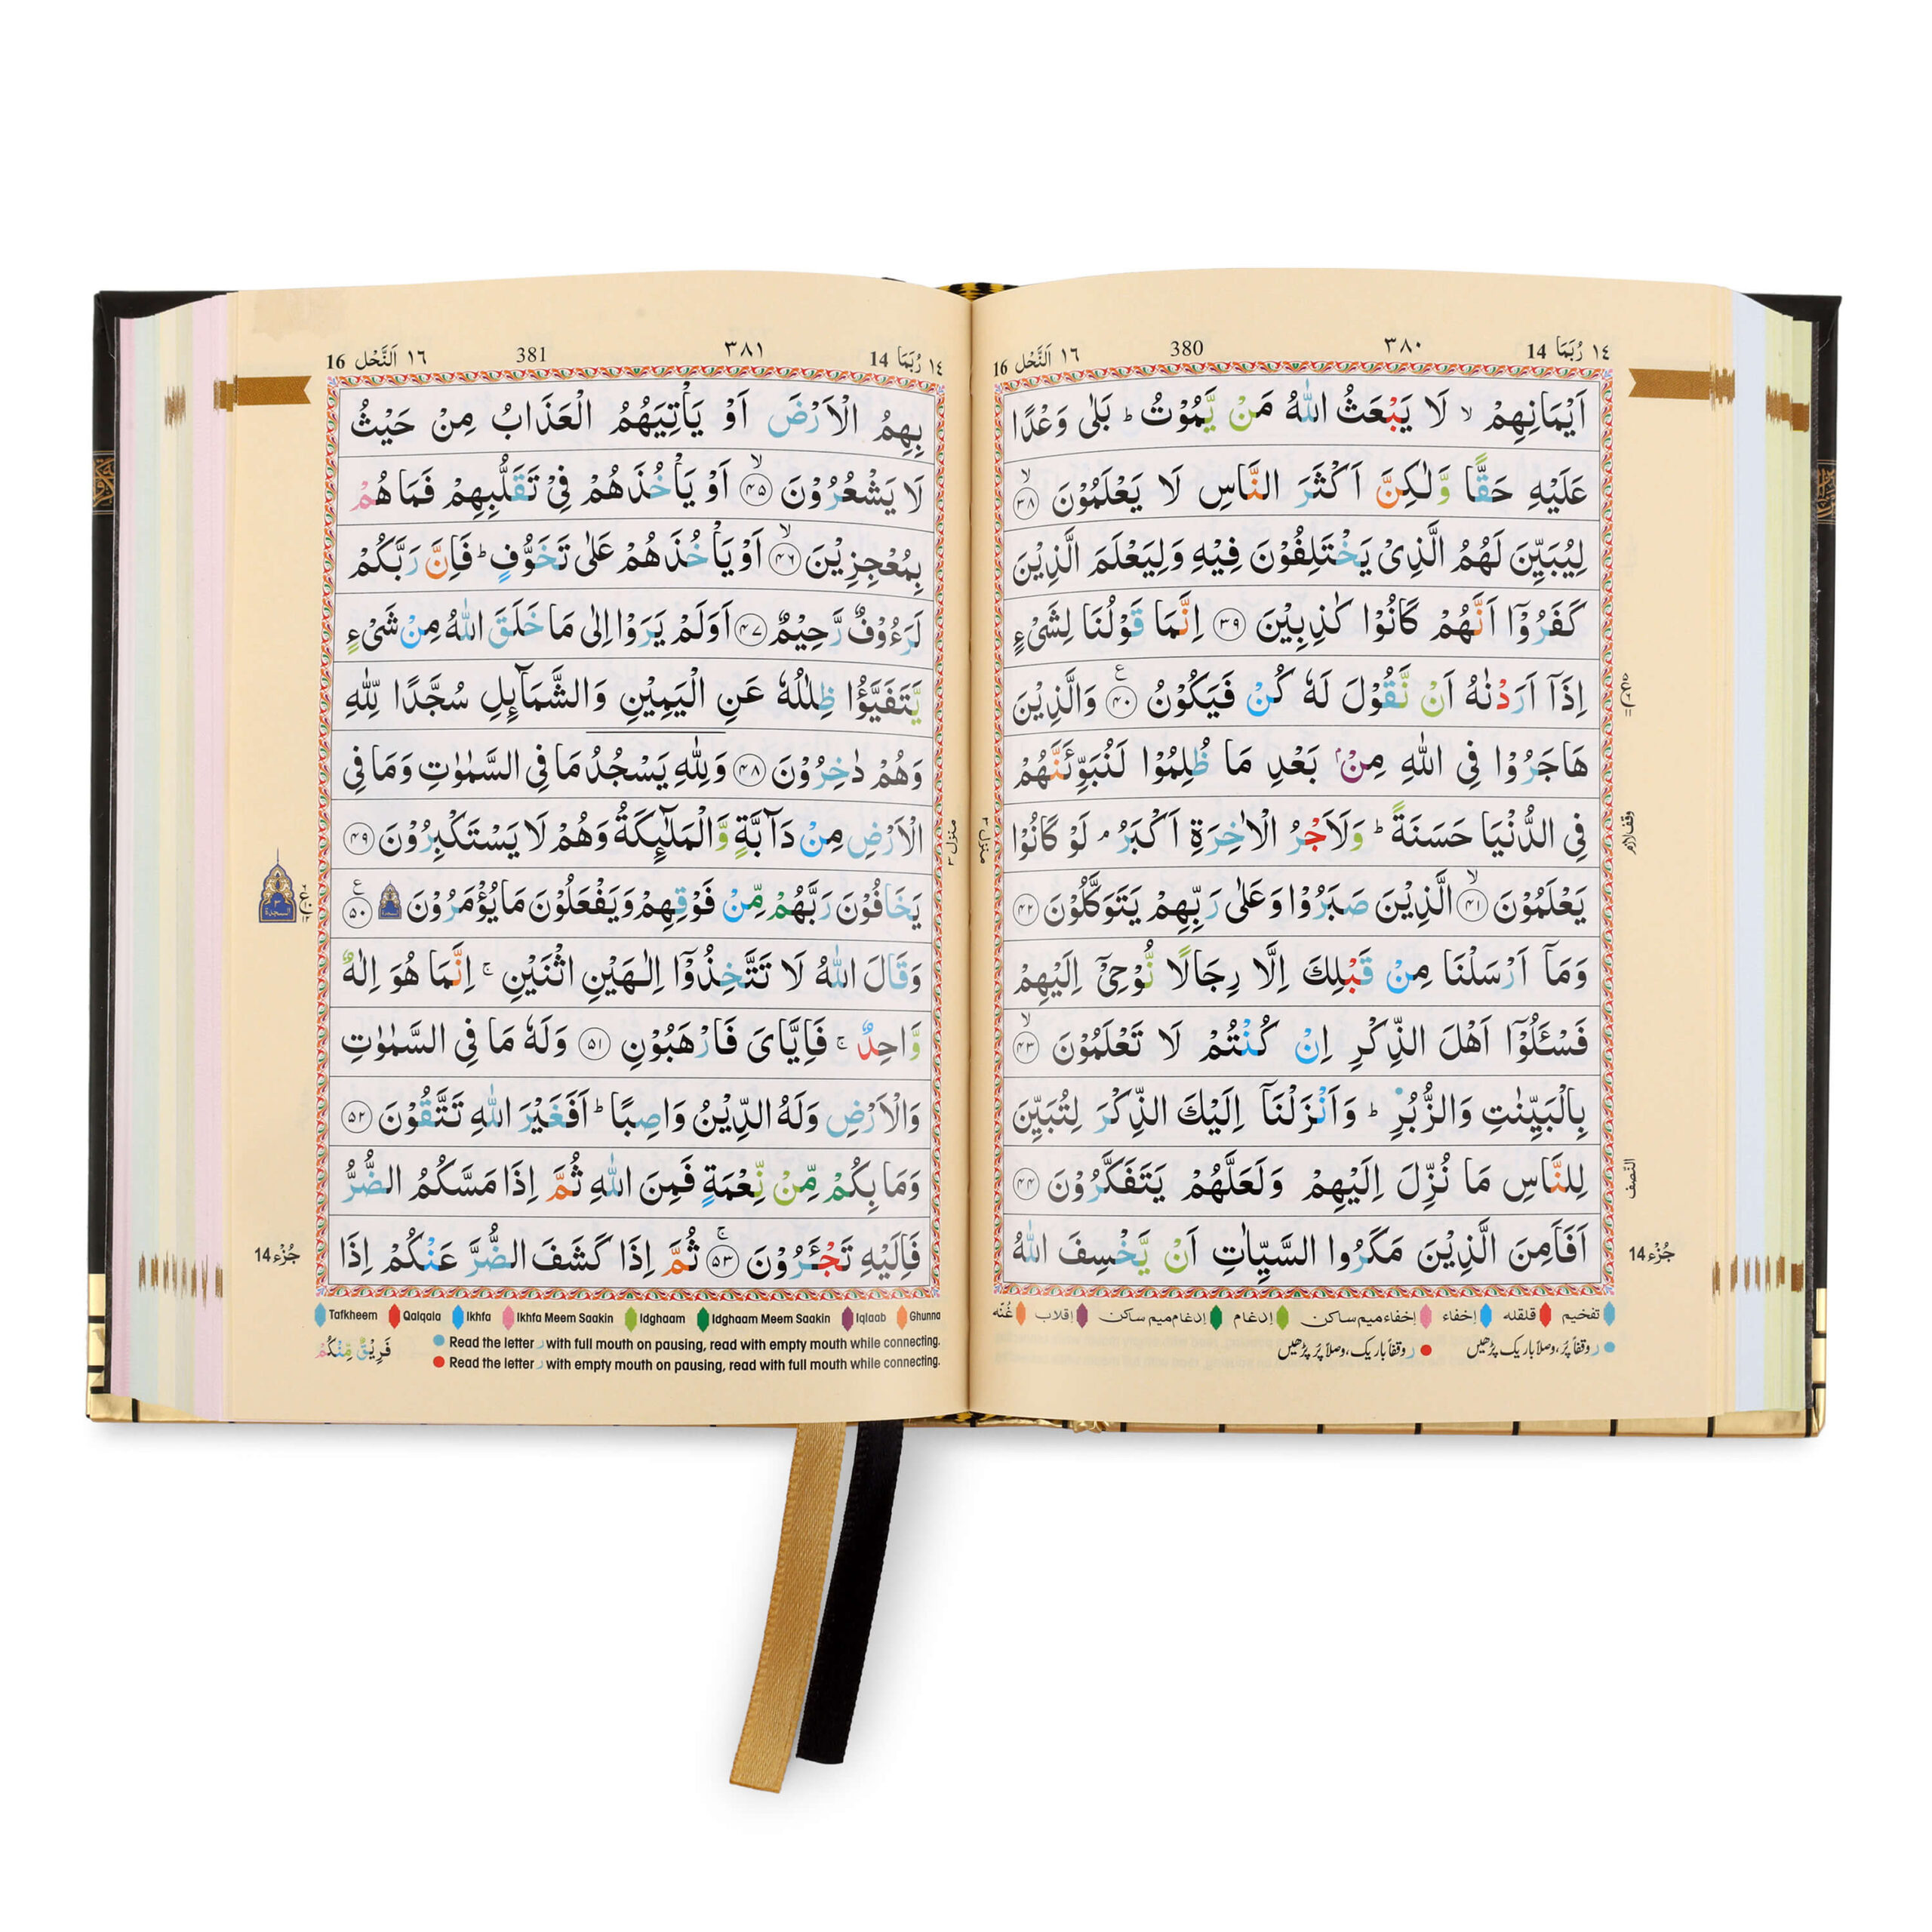 ١٤ رُبَمَا 14 ٣٨٠ 380 ١٦ اَلنَّحْل 16
اَيْمَانِهِمْ ۙ لَا يَبْعَثُ اللّٰهُ مَنْ يَّمُوْتُ ؕ بَلٰى وَعْدًا
عَلَيْهِ حَقًّا وَّلٰكِنَّ اَكْثَرَ النَّاسِ لَا يَعْلَمُوْنَ ۙ ﴿۳۸﴾
لِيُبَيِّنَ لَهُمُ الَّذِىْ يَخْتَلِفُوْنَ فِيْهِ وَلِيَعْلَمَ الَّذِيْنَ
كَفَرُوْۤا اَنَّهُمْ كَانُوْا كٰذِبِيْنَ ﴿۳۹﴾ اِنَّمَا قَوْلُنَا لِشَىْءٍ
اِذَاۤ اَرَدْنٰهُ اَنْ نَّقُوْلَ لَهٗ كُنْ فَيَكُوْنُ ﴿۴۰﴾ ع وَالَّذِيْنَ
هَاجَرُوْا فِى اللّٰهِ مِنْۢ بَعْدِ مَا ظُلِمُوْا لَنُبَوِّئَنَّهُمْ
فِى الدُّنْيَا حَسَنَةً ؕ وَلَاَجْرُ الْاٰخِرَةِ اَكْبَرُ ۘ لَوْ كَانُوْا
يَعْلَمُوْنَ ۙ ﴿۴۱﴾ الَّذِيْنَ صَبَرُوْا وَعَلٰى رَبِّهِمْ يَتَوَكَّلُوْنَ ﴿۴۲﴾
وَمَاۤ اَرْسَلْنَا مِنْ قَبْلِكَ اِلَّا رِجَالًا نُّوْحِىْۤ اِلَيْهِمْ
فَسْـَٔلُوْۤا اَهْلَ الذِّكْرِ اِنْ كُنْتُمْ لَا تَعْلَمُوْنَ ۙ ﴿۴۳﴾
بِالْبَيِّنٰتِ وَالزُّبُرِ ؕ وَاَنْزَلْنَاۤ اِلَيْكَ الذِّكْرَ لِتُبَيِّنَ
لِلنَّاسِ مَا نُزِّلَ اِلَيْهِمْ وَلَعَلَّهُمْ يَتَفَكَّرُوْنَ ﴿۴۴﴾
اَفَاَمِنَ الَّذِيْنَ مَكَرُوا السَّيِّاٰتِ اَنْ يَّخْسِفَ اللّٰهُ
النّصف
جُزْء 14
منزل ٣
تفخيم قلقله إخفاء إخفاءميم ساكن إدغام إدغام ميم ساكن إقلاب غُنّه
ر وقفاً پُر، وصلاً باریک پڑھیں ر وقفاً باریک، وصلاً پُر پڑھیں
١٤ رُبَمَا 14 ٣٨١ 381 ١٦ اَلنَّحْل 16
بِهِمُ الْاَرْضَ اَوْ يَاْتِيَهُمُ الْعَذَابُ مِنْ حَيْثُ
لَا يَشْعُرُوْنَ ۙ ﴿۴۵﴾ اَوْ يَاْخُذَهُمْ فِىْ تَقَلُّبِهِمْ فَمَا هُمْ
بِمُعْجِزِيْنَ ۙ ﴿۴۶﴾ اَوْ يَاْخُذَهُمْ عَلٰى تَخَوُّفٍ ؕ فَاِنَّ رَبَّكُمْ
لَرَءُوْفٌ رَّحِيْمٌ ﴿۴۷﴾ اَوَلَمْ يَرَوْا اِلٰى مَا خَلَقَ اللّٰهُ مِنْ شَىْءٍ
يَّتَفَيَّؤُا ظِلٰلُهٗ عَنِ الْيَمِيْنِ وَالشَّمَآئِلِ سُجَّدًا لِّلّٰهِ
وَهُمْ دٰخِرُوْنَ ﴿۴۸﴾ وَلِلّٰهِ يَسْجُدُ مَا فِى السَّمٰوٰتِ وَمَا فِى
الْاَرْضِ مِنْ دَآبَّةٍ وَّالْمَلٰٓئِكَةُ وَهُمْ لَا يَسْتَكْبِرُوْنَ ﴿۴۹﴾
يَخَافُوْنَ رَبَّهُمْ مِّنْ فَوْقِهِمْ وَيَفْعَلُوْنَ مَا يُؤْمَرُوْنَ ﴿۵۰﴾ ع
وَقَالَ اللّٰهُ لَا تَتَّخِذُوْۤا اِلٰـهَيْنِ اثْنَيْنِ ۚ اِنَّمَا هُوَ اِلٰهٌ
وَّاحِدٌ ۚ فَاِيَّاىَ فَارْهَبُوْنِ ﴿۵۱﴾ وَلَهٗ مَا فِى السَّمٰوٰتِ
وَالْاَرْضِ وَلَهُ الدِّيْنُ وَاصِبًا ؕ اَفَغَيْرَ اللّٰهِ تَتَّقُوْنَ ﴿۵۲﴾
وَمَا بِكُمْ مِّنْ نِّعْمَةٍ فَمِنَ اللّٰهِ ثُمَّ اِذَا مَسَّكُمُ الضُّرُّ
فَاِلَيْهِ تَجْـَٔرُوْنَ ۚ ﴿۵۳﴾ ثُمَّ اِذَا كَشَفَ الضُّرَّ عَنْكُمْ اِذَا
السجدة ٣
جُزْء 14
منزل ٣
Tafkheem Qalqala Ikhfa Ikhfa Meem Saakin Idghaam Idghaam Meem Saakin Iqlaab Ghunna
Read the letter ر with full mouth on pausing, read with empty mouth while connecting.
Read the letter ر with empty mouth on pausing, read with full mouth while connecting.
فَرِيْقٌ مِّنْكُمْ